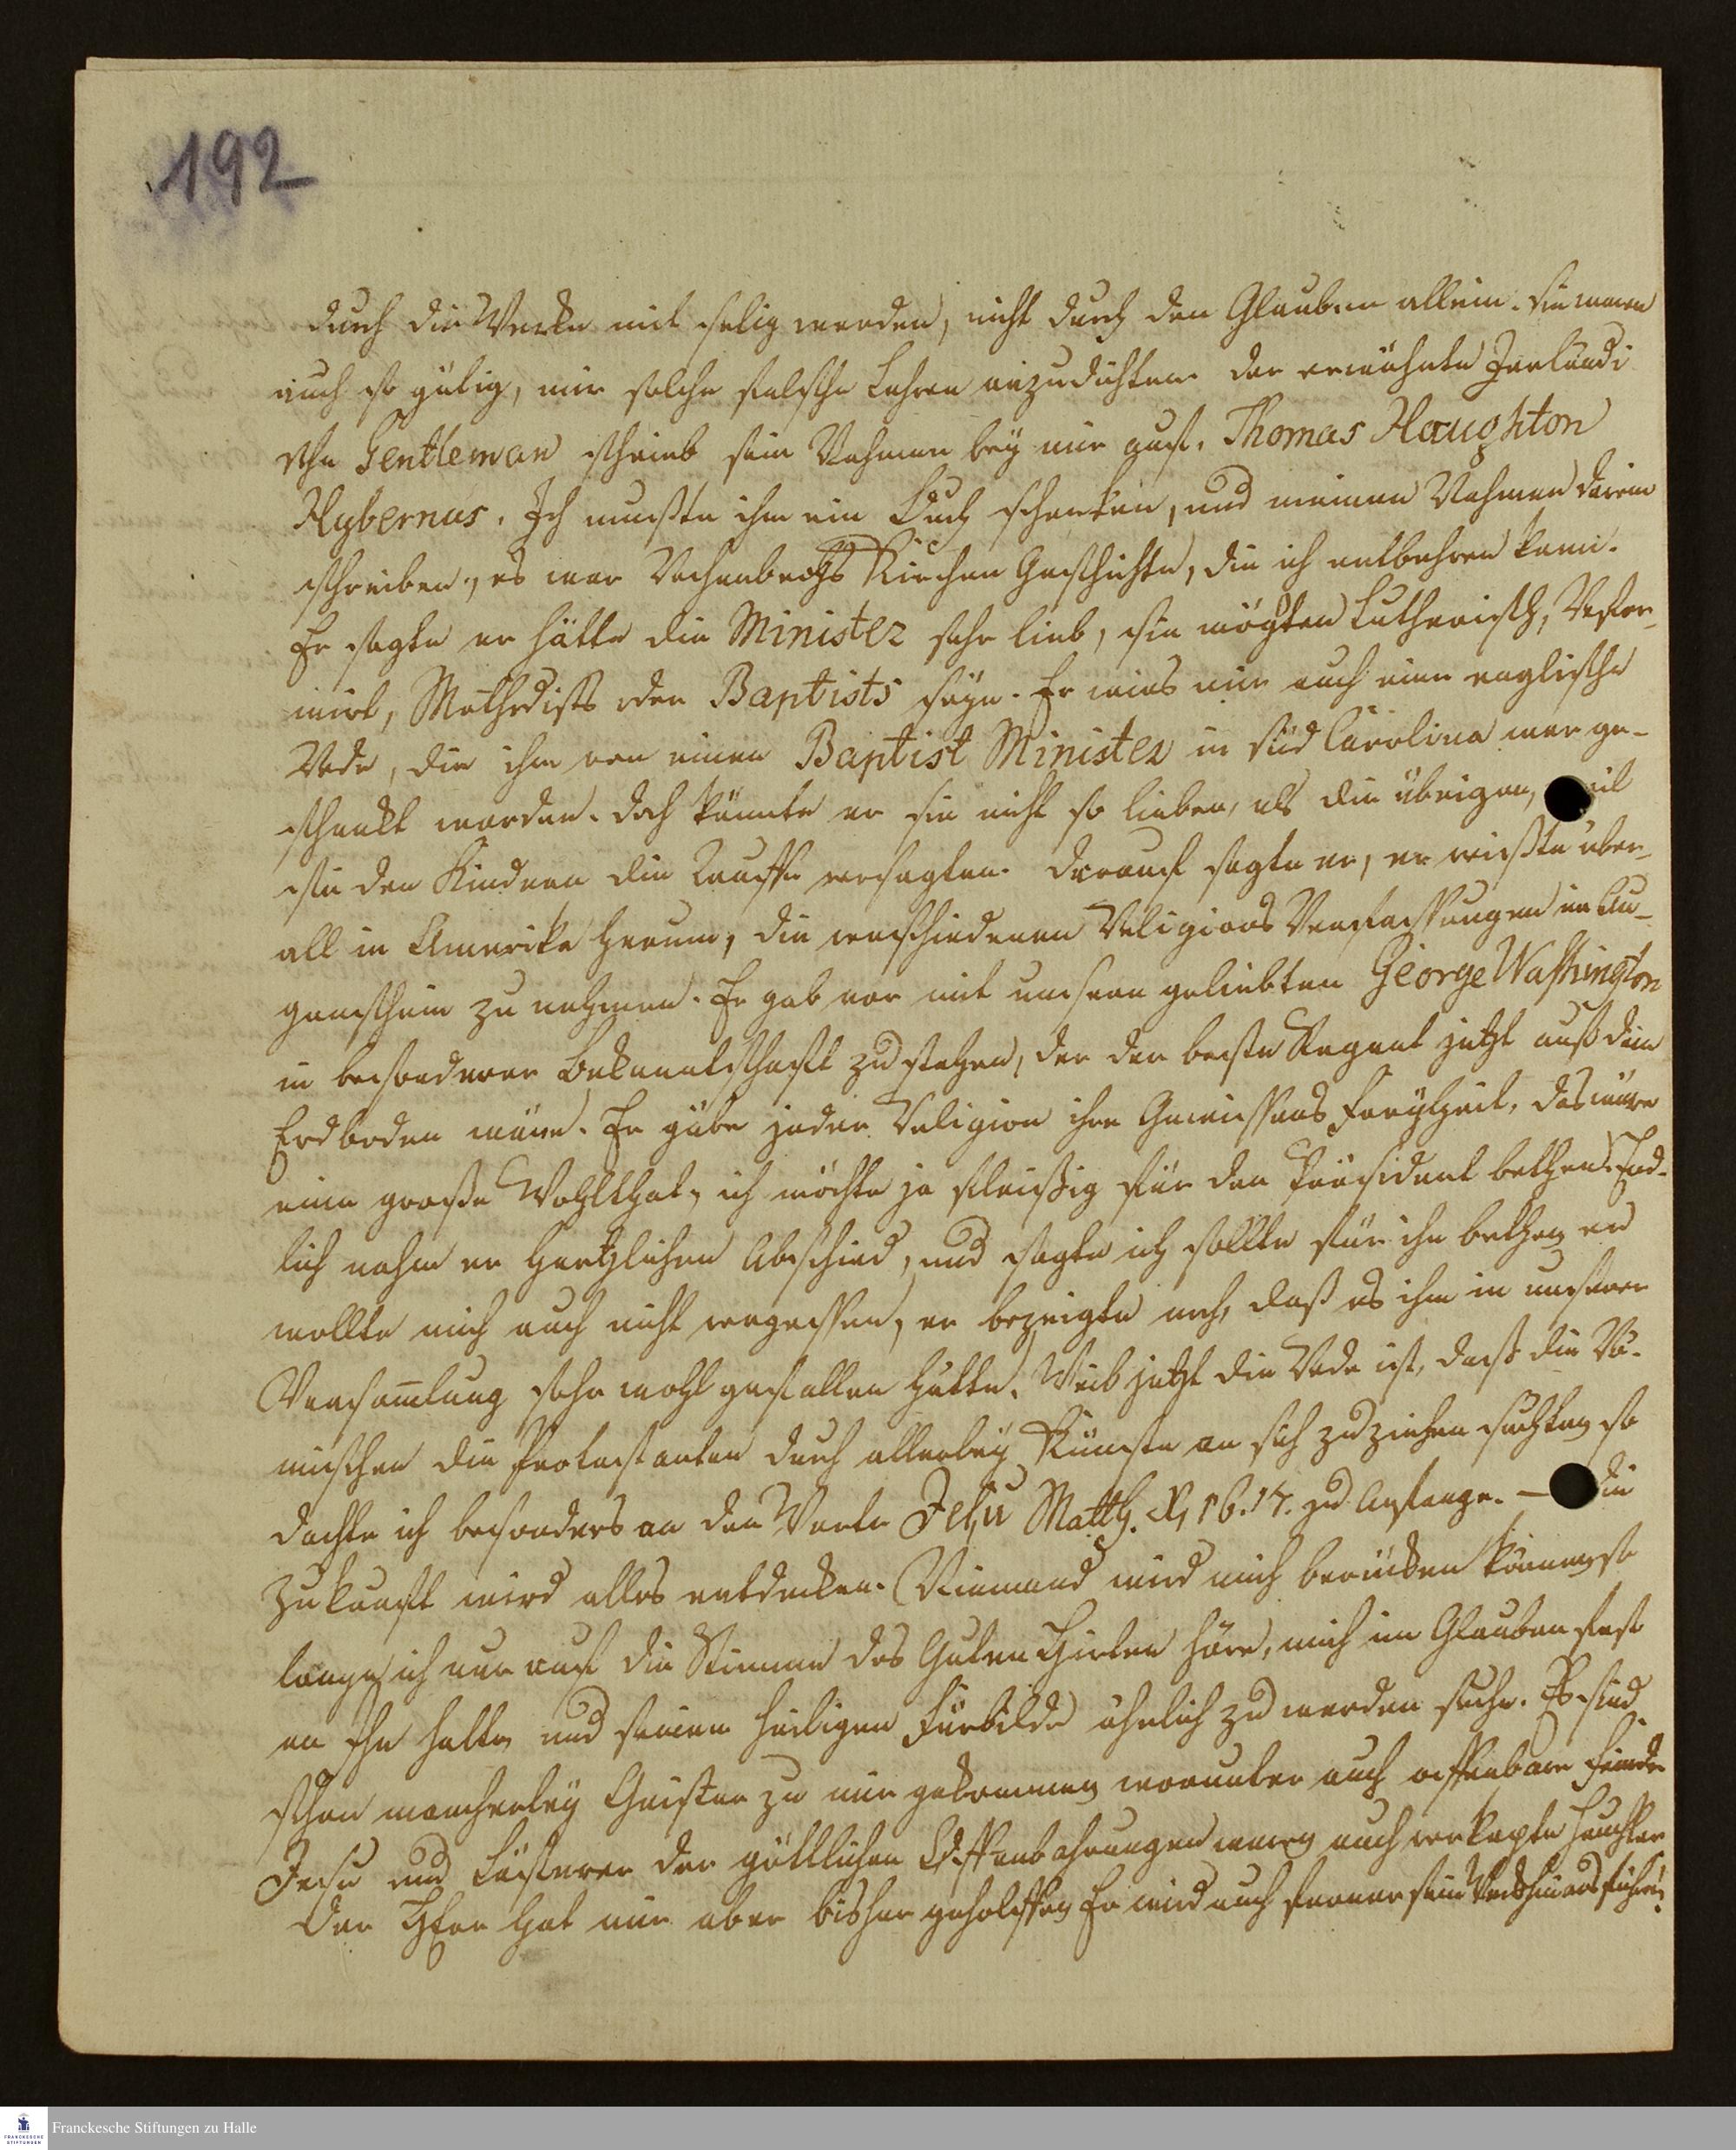 192
durch die Werke mit selig werden, nicht durch den Glauben allein. Sie waren
auch so gütig, mir solche falsche Lehren anzudichten. Der erwähnte Irrländi
sche Gentleman schrieb sein Nahmen bey mir auf. Thomas Haughton
Hybernus. Ich mußte ihm ein Buch schenken, und meinen Nahmen darein
schreiben, es war Rechenbergs Kirchen Geschichte, die ich entbehren kann.
Er sagte er hätte die Minister sehr lieb, sie mögten Lutherisch, Refor-
mirt, Methodists oder Baptists seyn. Er wies mir auch eine englische
Rede, die ihm von einen Baptist Minister in Süd Carolina war ge-
schenkt worden. Doch könnte er sie nicht so lieben, als die übrigen, weil
sie den Kindern die Tauffe versagten. Darauf sagte er, er reißte über-
all in Amerika herum, die verschiedenen Religions Verfassungen in Au-
genschein zu nehmen. Er gab vor mit unsern geliebten George Washington
in besonderer Bekanntschafft zu stehen, der der beste Regent jetzt auf dem
Erdboden wäre. Er gäbe jeder Religion ihre Gewissens Freyheit, das wäre
eine große Wohlthat, ich möchte ja fleißig für den Präsident bethen. End-
lich nahm er hertzlichen Abschied, und sagte ich sollte für ihn bethen er
wollte mich auch nicht vergessen, er bezeigte noch, daß es ihm in unserer
Versamlung sehr wohl gefallen hätte. Weil jetzt die Rede ist, dass die Rö-
mischen die Protestanten durch allerley Künste an sich zu ziehen suchten so
dachte ich besonders an den Worte Jesu Matth. X, 16. 17. zu Anfange. – Die
Zukunfft wird alles entdecken. Niemand wird mich berücken können so
lange ich nur auf die Stimme des Guten Hirten höre, mich im Glauben fest
an Ihn halte, und seinem heiligen Fürbilde ähnlich zu werden suche. Es sind
schon mancherley Geister zu mir gekommen worunter auch offenbare Feinde
Jesu und Lästerer der göttlichen Offenbahrungen waren auch verkapte Heuchler
Der HErr hat mir aber bisher geholffen Er wird auch ferner sein Werk hinaus führen.
Franckesche Stiftungen zu Halle
FRANCKESCHE
STIFTUNGEN